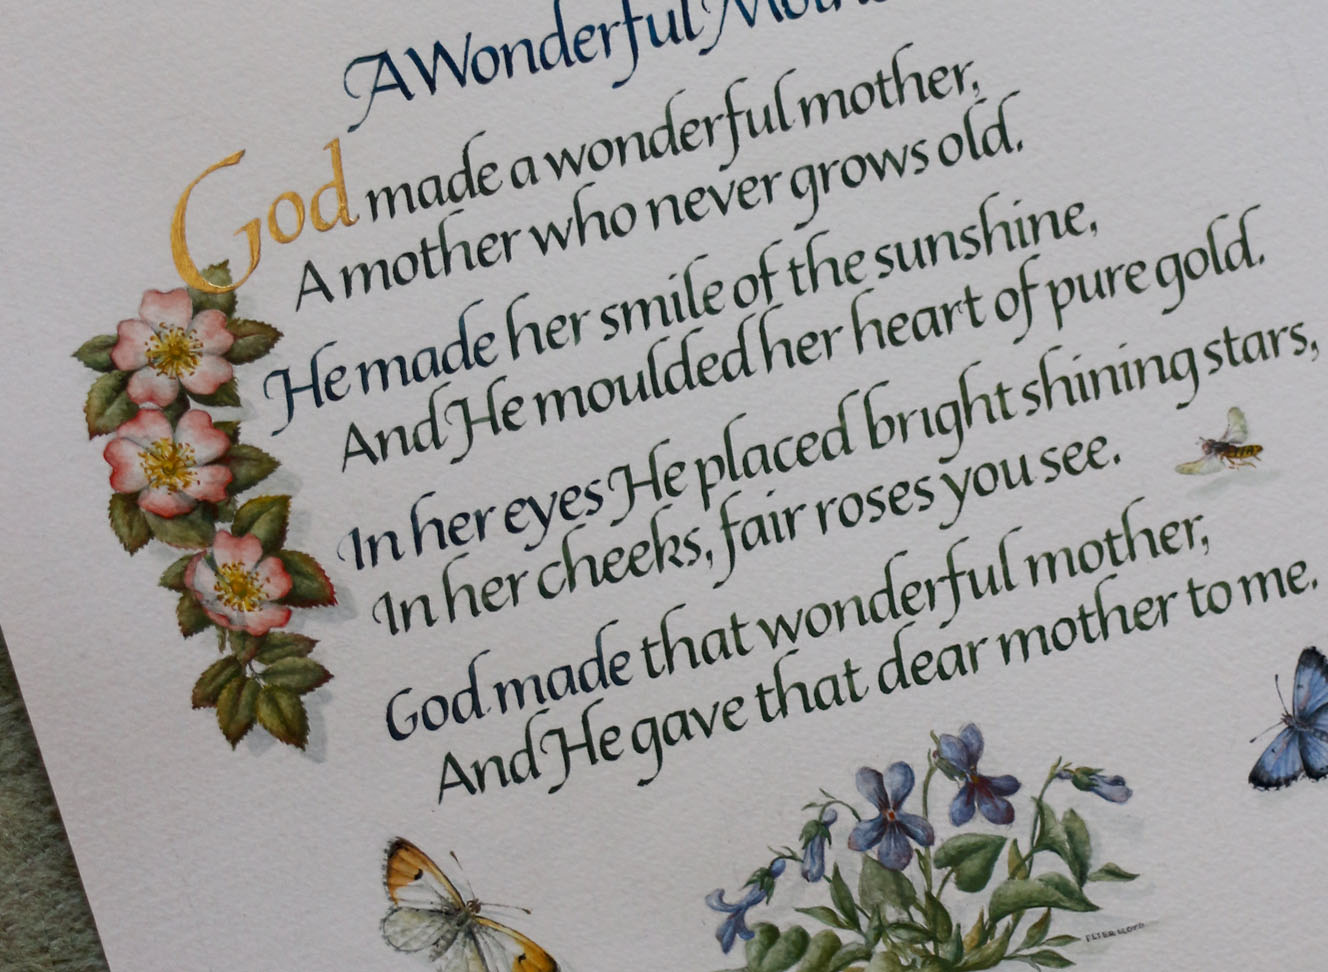 A Wonderful Mother
God made a wonderful mother,
A mother who never grows old.
He made her smile of the sunshine,
And He moulded her heart of pure gold.
In her eyes He placed bright shining stars,
In her cheeks, fair roses you see.
God made that wonderful mother,
And He gave that dear mother to me.
PETER LLOYD